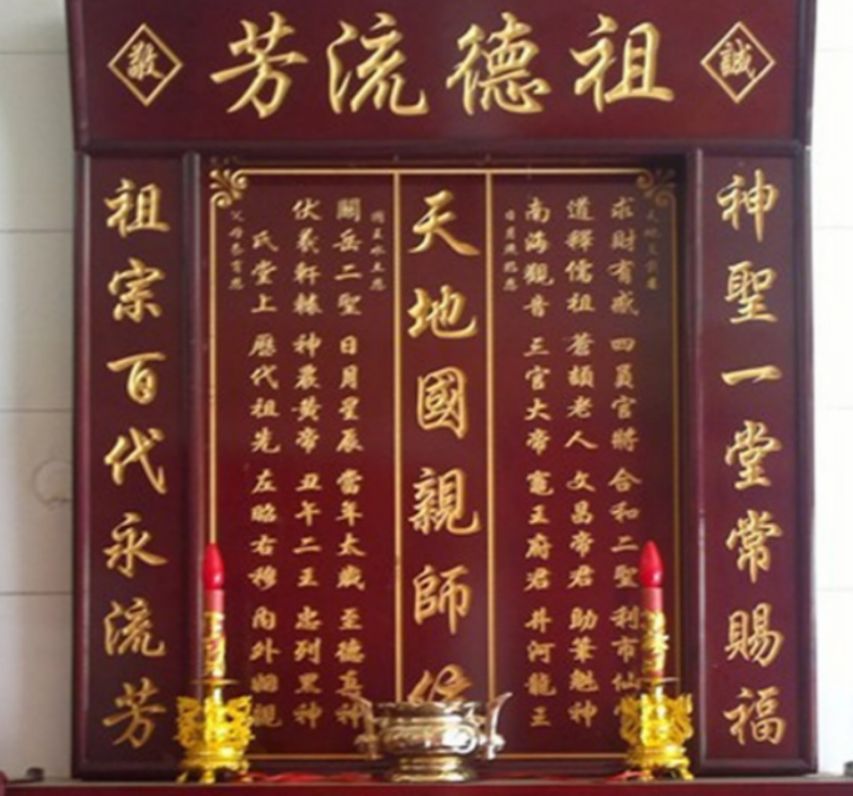 誠
祖德流芳
敬
神聖一堂常賜福
求財有感 四員官將 合和二聖 利市仙
道釋儒祖 蒼頡老人 文昌帝君 助筆魁神
南海觀音 三官大帝 竈王府君 井河龍王
日月照臨恩
天地國親師位
國王水土恩
關岳二聖 日月星辰 當年太歲 至德真神
伏羲軒轅 神農黃帝 丑午二王 忠列黑神
氏堂上 歷代祖先 左昭右穆 內外姻親
父母養育恩
祖宗百代永流芳